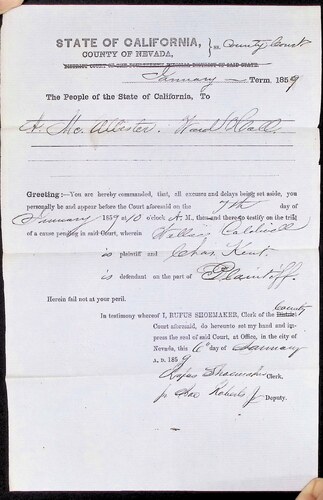 STATE OF CALIFORNIA, } ss. County Court
COUNTY OF NEVADA,
DISTRICT COURT OF THE FOURTEENTH JUDICIAL DISTRICT OF SAID STATE.
January Term, 1859
The People of the State of California, To
A. Mc. Allister. Ward Hall.
Greeting:—You are hereby commanded, that, all excuses and delays being set aside, you
personally be and appear before the Court aforesaid on the 7th day of
January 1859 at 10 o'clock A. M., then and there to testify on the trial
of a cause pending in said Court, wherein Wallace Caldwell
is plaintiff and Chas. Kent
is defendant on the part of Plaintiff.
Herein fail not at your peril.
In testimony whereof I, RUFUS SHOEMAKER, Clerk of the District County
Court aforesaid, do hereunto set my hand and im-
press the seal of said Court, at Office, in the city of
Nevada, this 6th day of January
A. D. 1859
Rufus Shoemaker Clerk,
Roberts Jr Deputy.